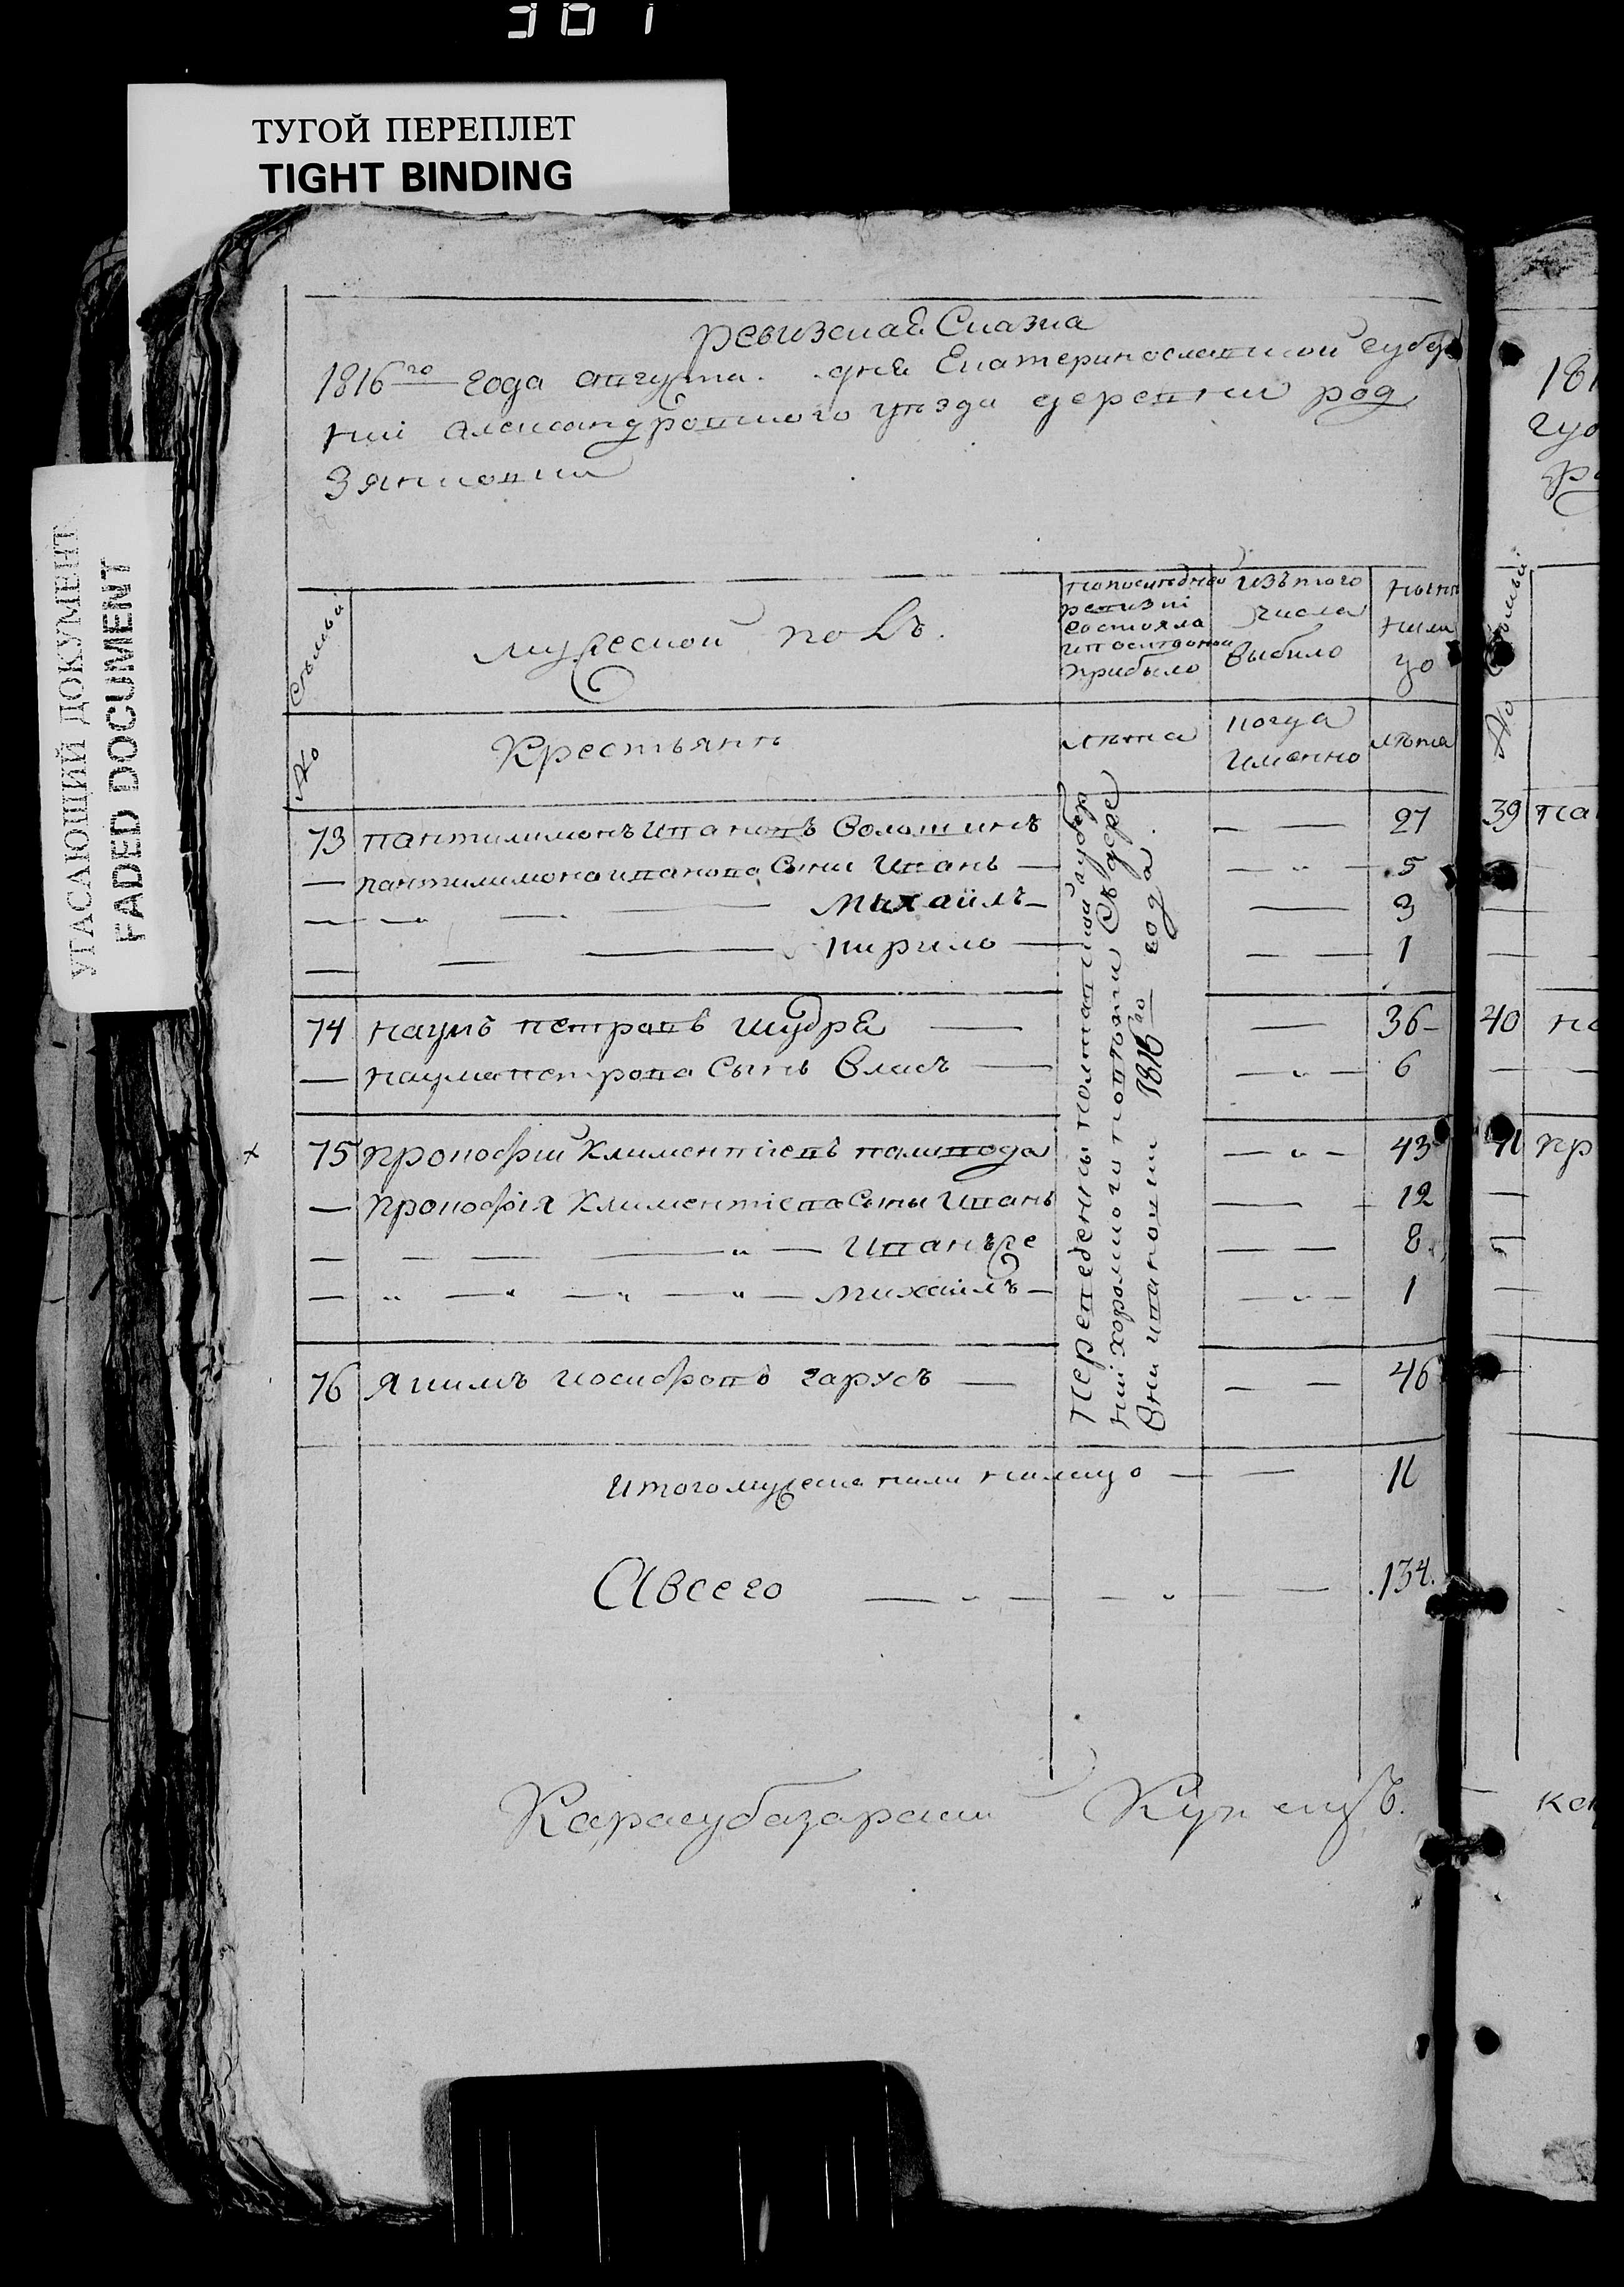 301
ТУГОЙ ПЕРЕПЛЕТ
TIGHT BINDING
УГАСАЮЩИЙ ДОКУМЕНТ
FADED DOCUMENT
Ревизская Сказка
1816го года августа. дня Екатеринославской губер
нии Александровского уезда деревни
Семьи
мужеской полъ.
по последней ревизии состояло и после того прибыло
изътого числа выбыло
ныне на ли цо
№
Крестьянъ
лета
когда именно
лета
73 Пантилимонъ Ивановъ Волошинъ — — 27
— Пантилимона Иванова Сыны Иванъ — — 5
— — Михайлъ — — 3
— — Кирило — — 1
74 Наумъ Петровъ Щудря — — 36
— Наума Петрова Сынъ Власъ — — 6
75 Прокофий Климентиевъ — 43
— Прокофия Климентиева Сыны Иванъ — 12
— — Иванъ же — — 8
— — Михайлъ — — 1
76 Якимъ Иосифовъ Гарусъ — — 46
Переведены Полтавской губер
нии Хорольского поветта Съ дере
вни Ивановки 1816го года.
Итого мужеска пола налицо — — 11
А всего — — 134.
Карасубазарский Купецъ.
39
40
41